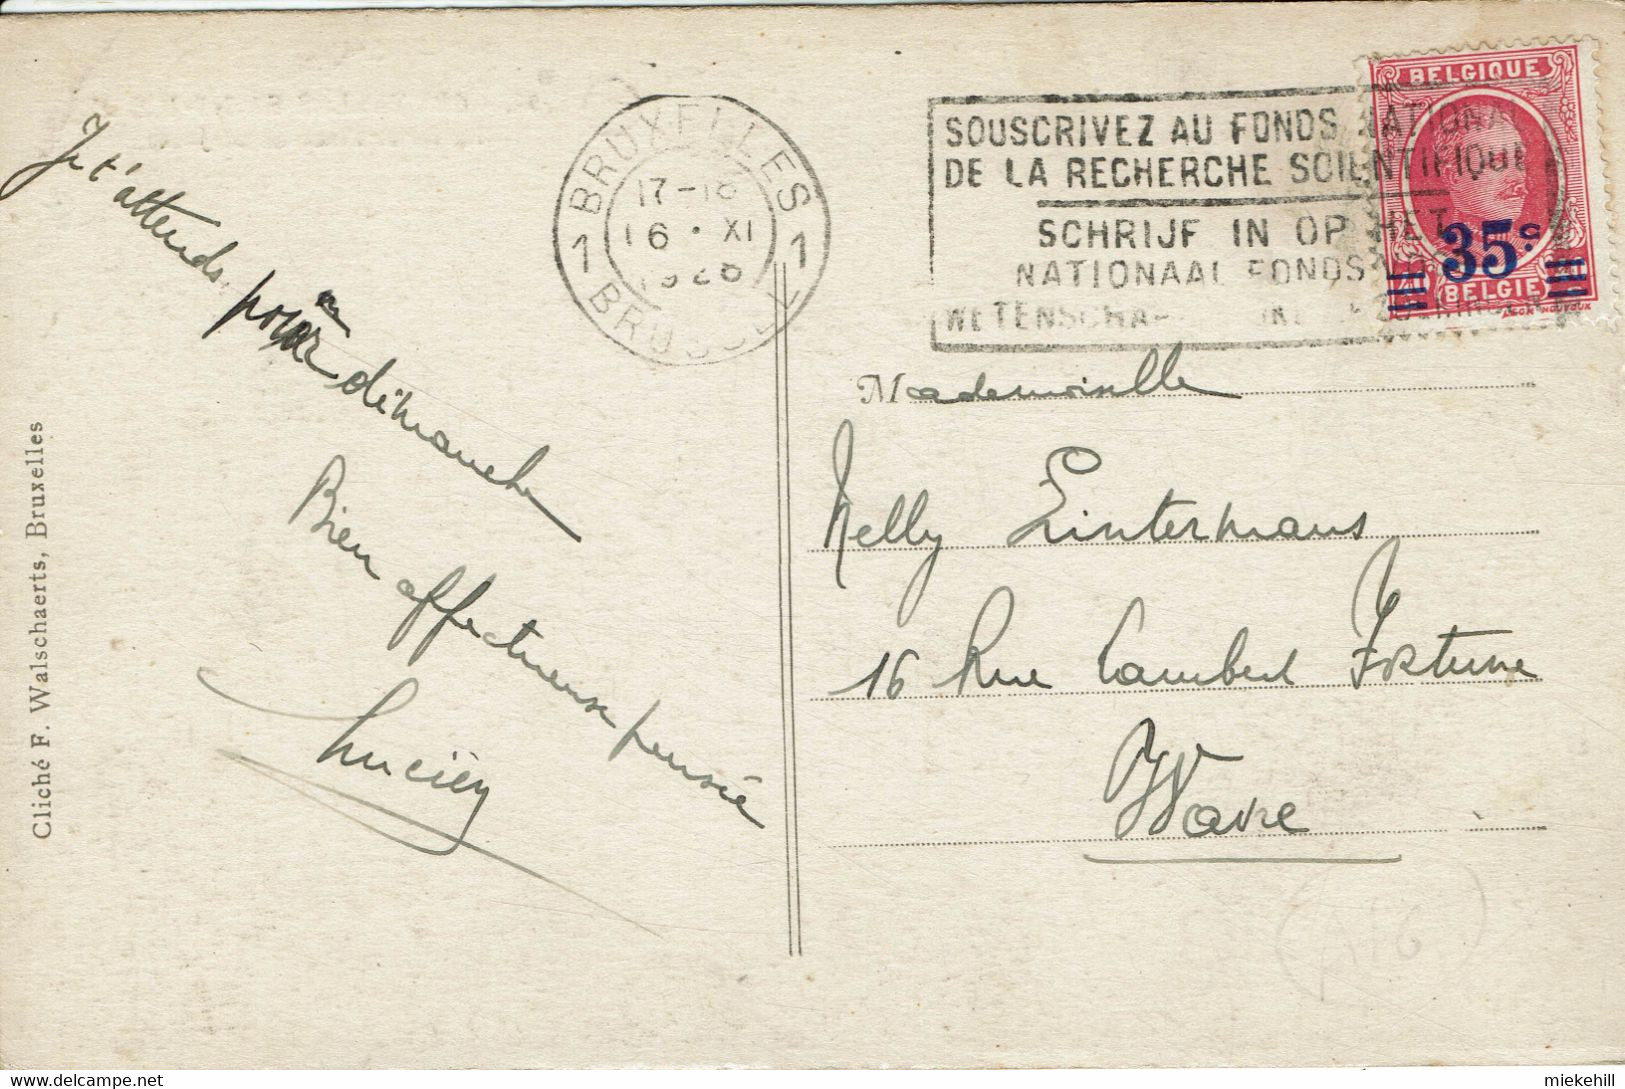 Je t'attends pour dimanche
Bien affectueuse pensée
Lucien
Cliché F. Walschaerts, Bruxelles
BRUXELLES
17-18
16 · XI
1928
1 1
BRUSSEL
SOUSCRIVEZ AU FONDS NATIONAL
DE LA RECHERCHE SCIENTIFIQUE
SCHRIJF IN OP HET
NATIONAAL FONDS
BELGIQUE
35c
BELGIË
Mademoiselle
Nelly Lintermans
16 Rue Lambert Fortune
Wavre
miekehill